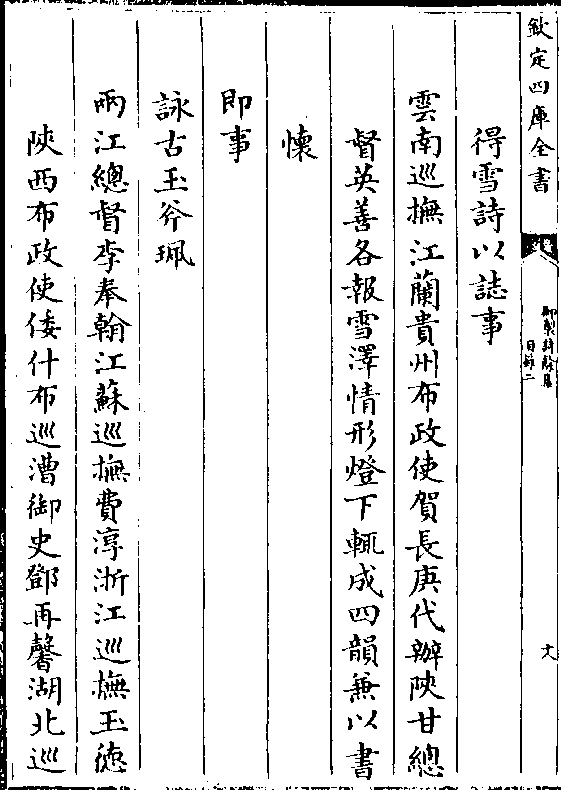 欽定四庫全書
御製詩餘集
目錄二
得雪詩以誌事
雲南巡撫江蘭貴州布政使賀長庚代辦陝甘總
督英善各報雪澤情形燈下輒成四韻兼以書
懷
即事
詠古玉斧珮
兩江總督李奉翰江蘇巡撫費淳浙江巡撫玉德
陝西布政使倭什布巡漕御史鄧再馨湖北巡